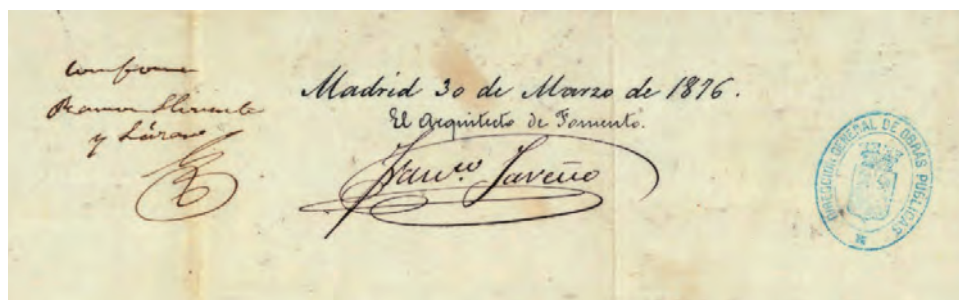 Conforme
Ramon Llorente
y Lázaro
Madrid 30 de Marzo de 1876.
El Arquitecto de Fomento.
Franco. Jareño
DIRECCION GENERAL DE OBRAS PUBLICAS